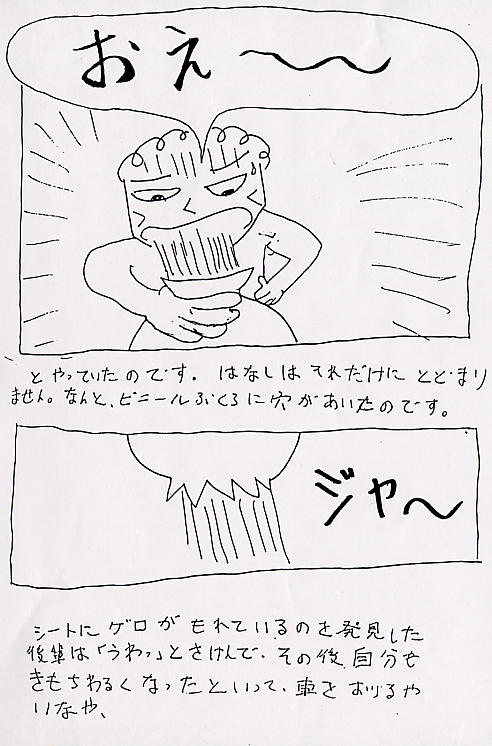 おえ〜〜
とやっていたのです。はなしはそれだけにとどまり
ません。なんと、ビニールぶくろに穴があいたのです。
ジャ〜
シートにゲロがもれているのを発見した
後輩は「うわっ」とさけんで、その後、自分も
きもちわるくなったといって、車をおりるや
いなや、